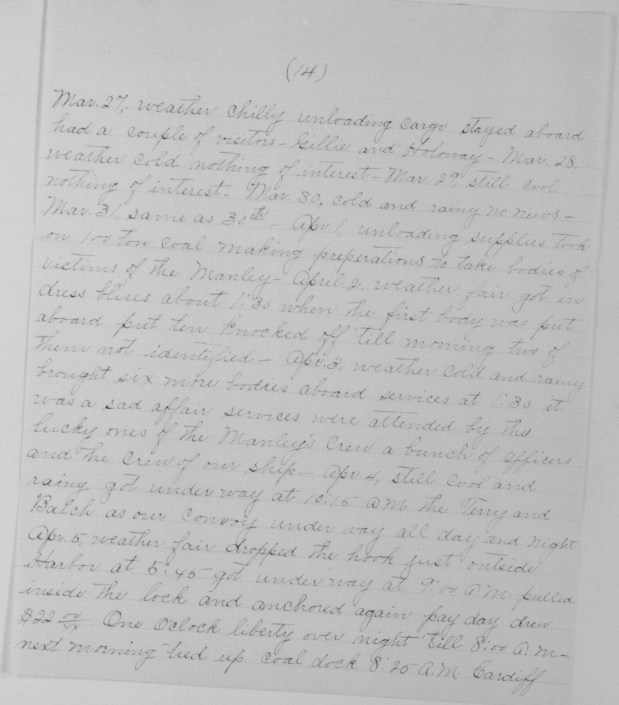 (14)
Mar. 27, weather chilly unloading cargo stayed aboard
had a couple of visitors - Gillie and Holoway - Mar. 28.
weather cold nothing of interest - Mar. 29, still cool
nothing of interest - Mar. 30, cold and rainy no news -
Mar. 31, same as 30th - Apr. 1, unloading supplies took
on 100 ton coal making preperations to take bodies of
victims of the Manley - April 2, weather fair got in
dress blues about 1:30 when the first body was put
aboard put ten knocked off till morning two of
them not identified - Apr. 3, weather cold and rainy
brought six more bodies aboard services at 1:30 it
was a sad affair services were attended by the
lucky ones of the Manley's crew a bunch of officers
and the crew of our ship - Apr 4, still cool and
rainy got underway at 10:15 A.M. the Terry and
Balch as our convoy under way all day and night
Apr. 5, weather fair dropped the hook just outside
Harbor at 5:45 got under way at 9:00 A.M. pulled
inside the lock and anchored again pay day drew
$22 00/xx One O'clock liberty over night till 8:00 A.M. -
next morning tied up coal dock 8:25 A.M. Cardiff